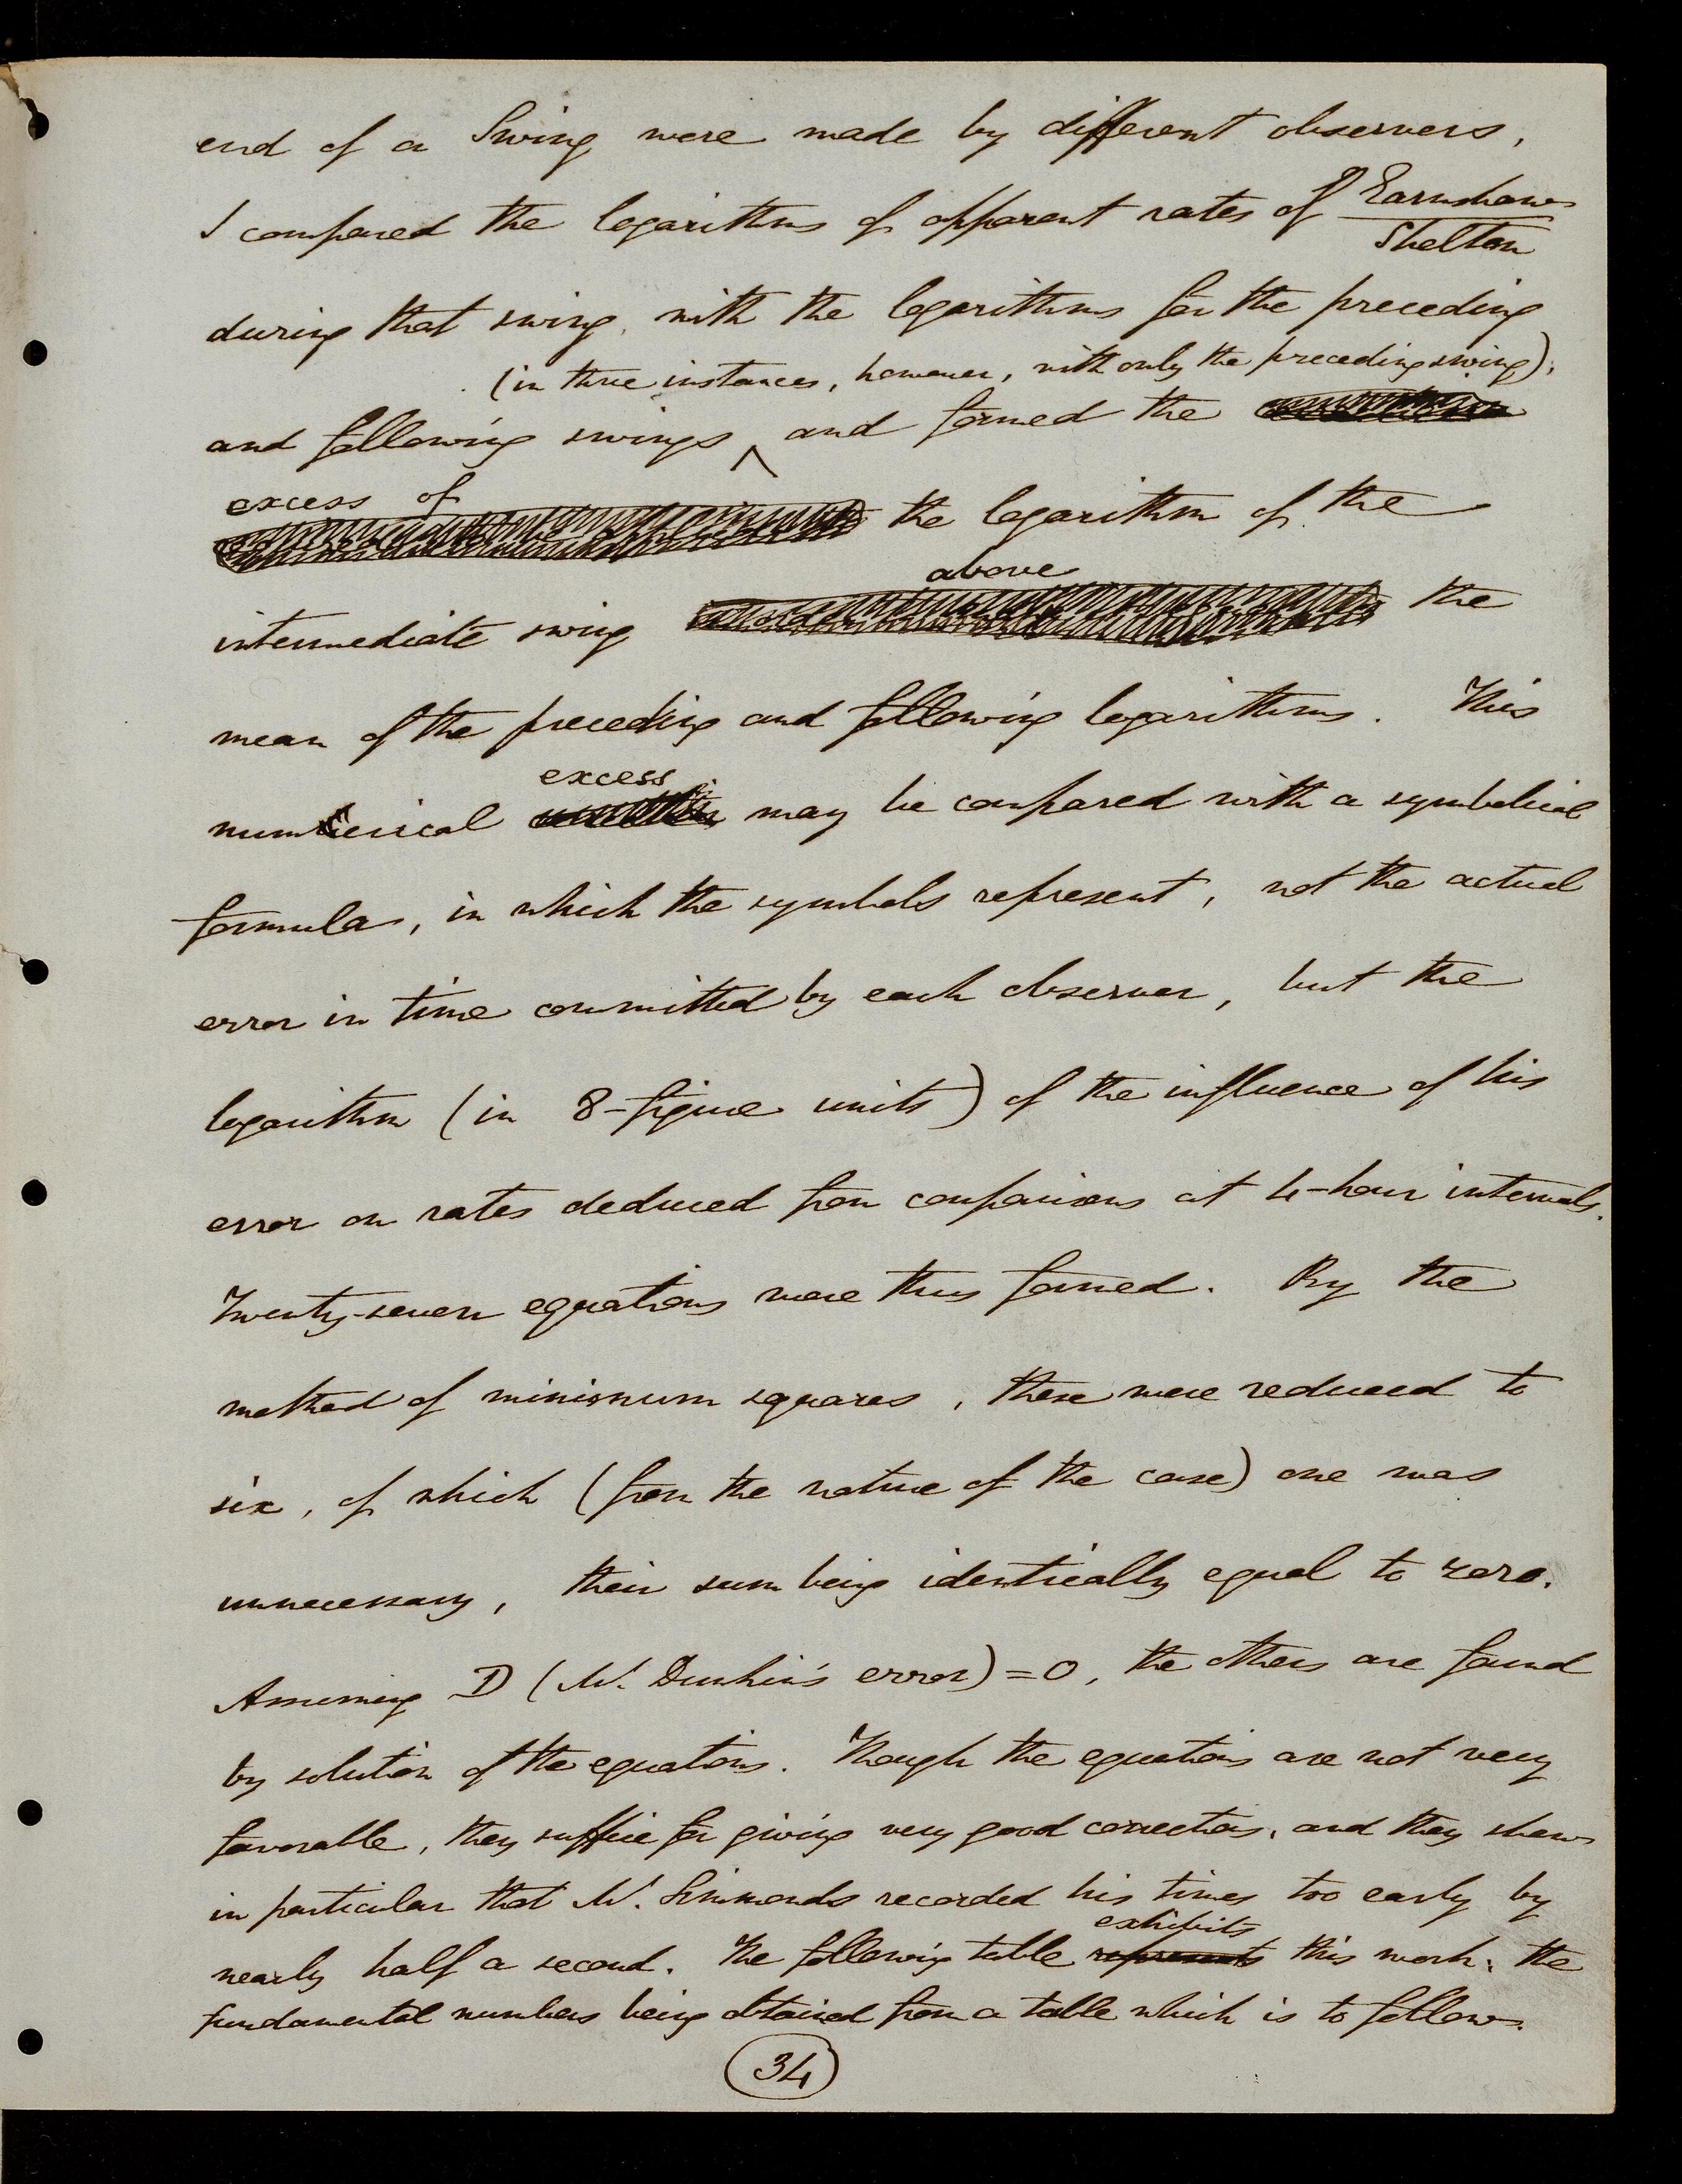 end of a Swing were made by different observers,
I compared the logarithms of apparent rates of Earnshaw
Shelton
during that swing, with the logarithms for the preceding
(in three instances, however, with only the preceding swing),
and following swings and formed the
excess of
the logarithm of the
above
intermediate swing the
mean of the preceding and following logarithms. This
excess
numerical may be compared with a symbolical
formula, in which the symbols represent, not the actual
error in time committed by each observer, but the
logarithm (in 8-figure units) of the influence of his
error on rates deduced from comparisons at 4-hour intervals.
Twenty-seven equations were thus formed. By the
method of minimum squares, these were reduced to
six, of which (from the nature of the case) one was
unnecessary, their sum being identically equal to zero.
Assuming D (Mr. Dunkin's error) = 0, the others are found
by solution of the equations. Though the equations are not very
favorable, they suffice for giving very good corrections, and they shew
in particular that Mr. Simmonds recorded his times too early by
exhibits
nearly half a second. The following table represents this work: the
fundamental numbers being obtained from a table which is to follow.
34